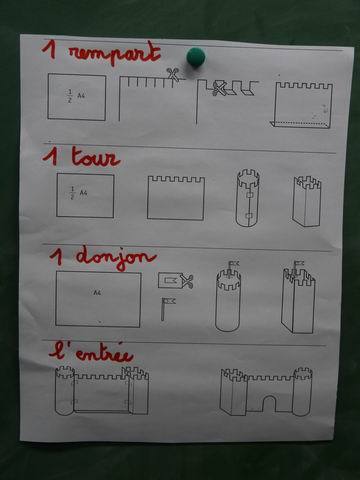 1 rempart
1/2 A4
1 tour
1/2 A4
1 donjon
A4
l'entrée